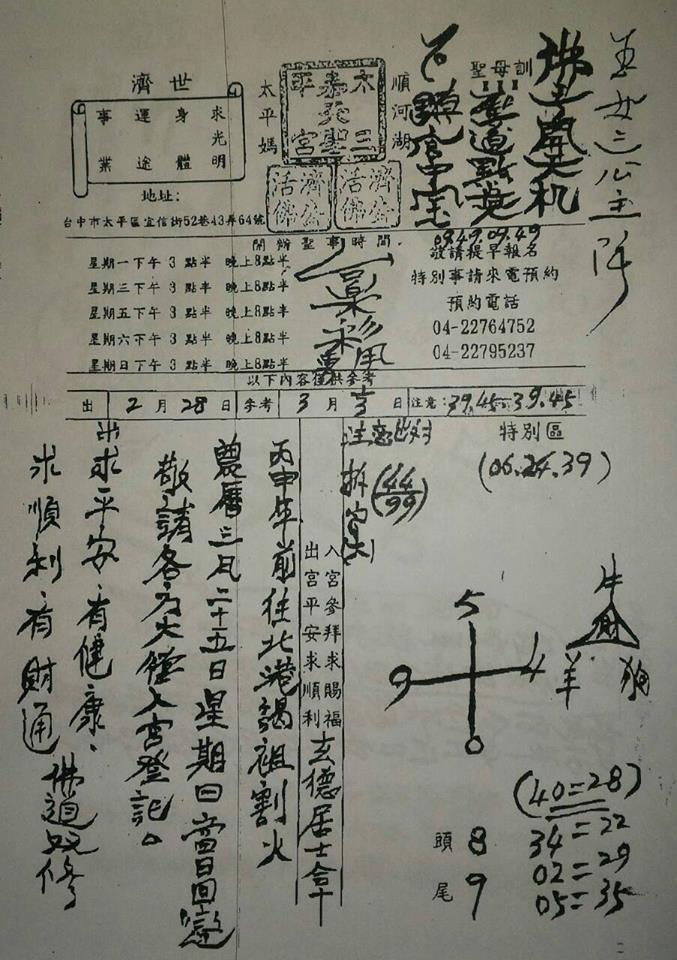 玉女三公主降
佛
天机
聖母訓
聖
點
順河湖
太嘉平
天
三聖宮
太平媽
濟公活佛
濟公活佛
濟世
求光明
身體
運途
事業
地址:
台中市太平區宜信街52巷43弄64號
開辦聖事時間
09.49.09.49
星期一下午3點半 晚上8點半
星期三下午3點半 晚上8點半
星期五下午3點半 晚上8點半
星期六下午3點半 晚上8點半
星期日下午3點半 晚上8點半
敬請提早報名
特別事請來電預約
預約電話
04-22764752
04-22795237
以下內容僅供參考
出 2月28日 參考 3月 日 注意:39.45-39.45
特別區
(06.24.39)
注意
(44
99)
入宮參拜求賜福
出宮平安求順利
玄德居士合十
丙申年前往北港謁祖割火
農曆三月二十五日星期日當日回鑾
敬請各方大德入宮登記。
求平安、有健康、
求順利有財通
佛道双修
5
9 4
0
牛
財
羊 狗
(40=28)
34=22
02=29
05=35
頭 8
尾 9